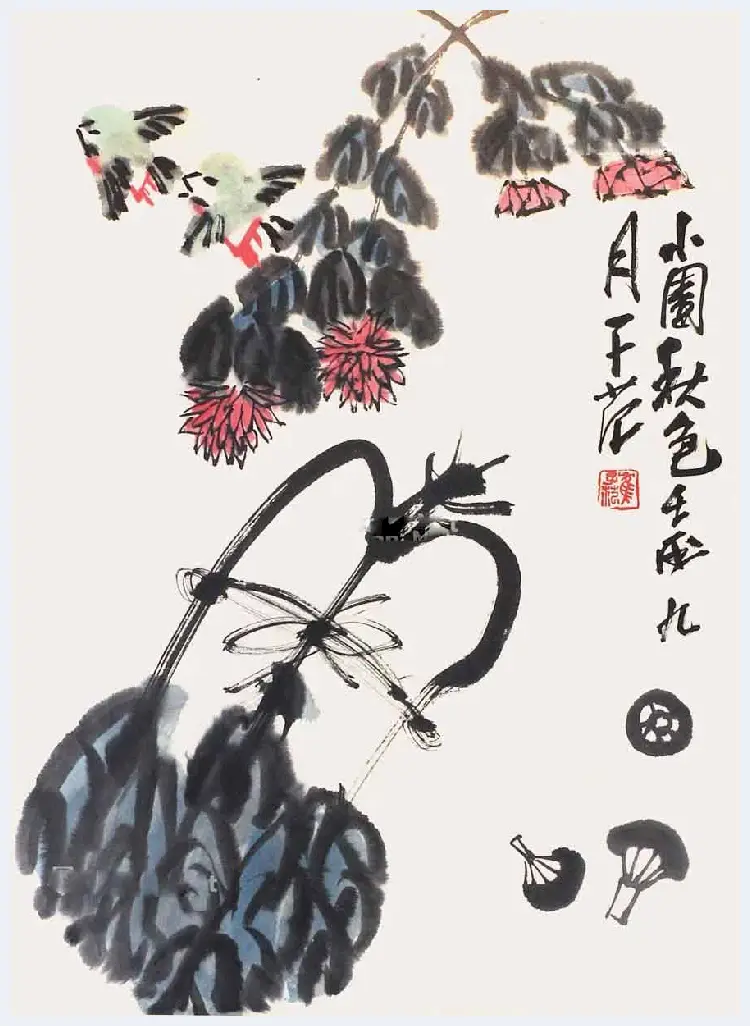 小園秋色壬戌九
月子范